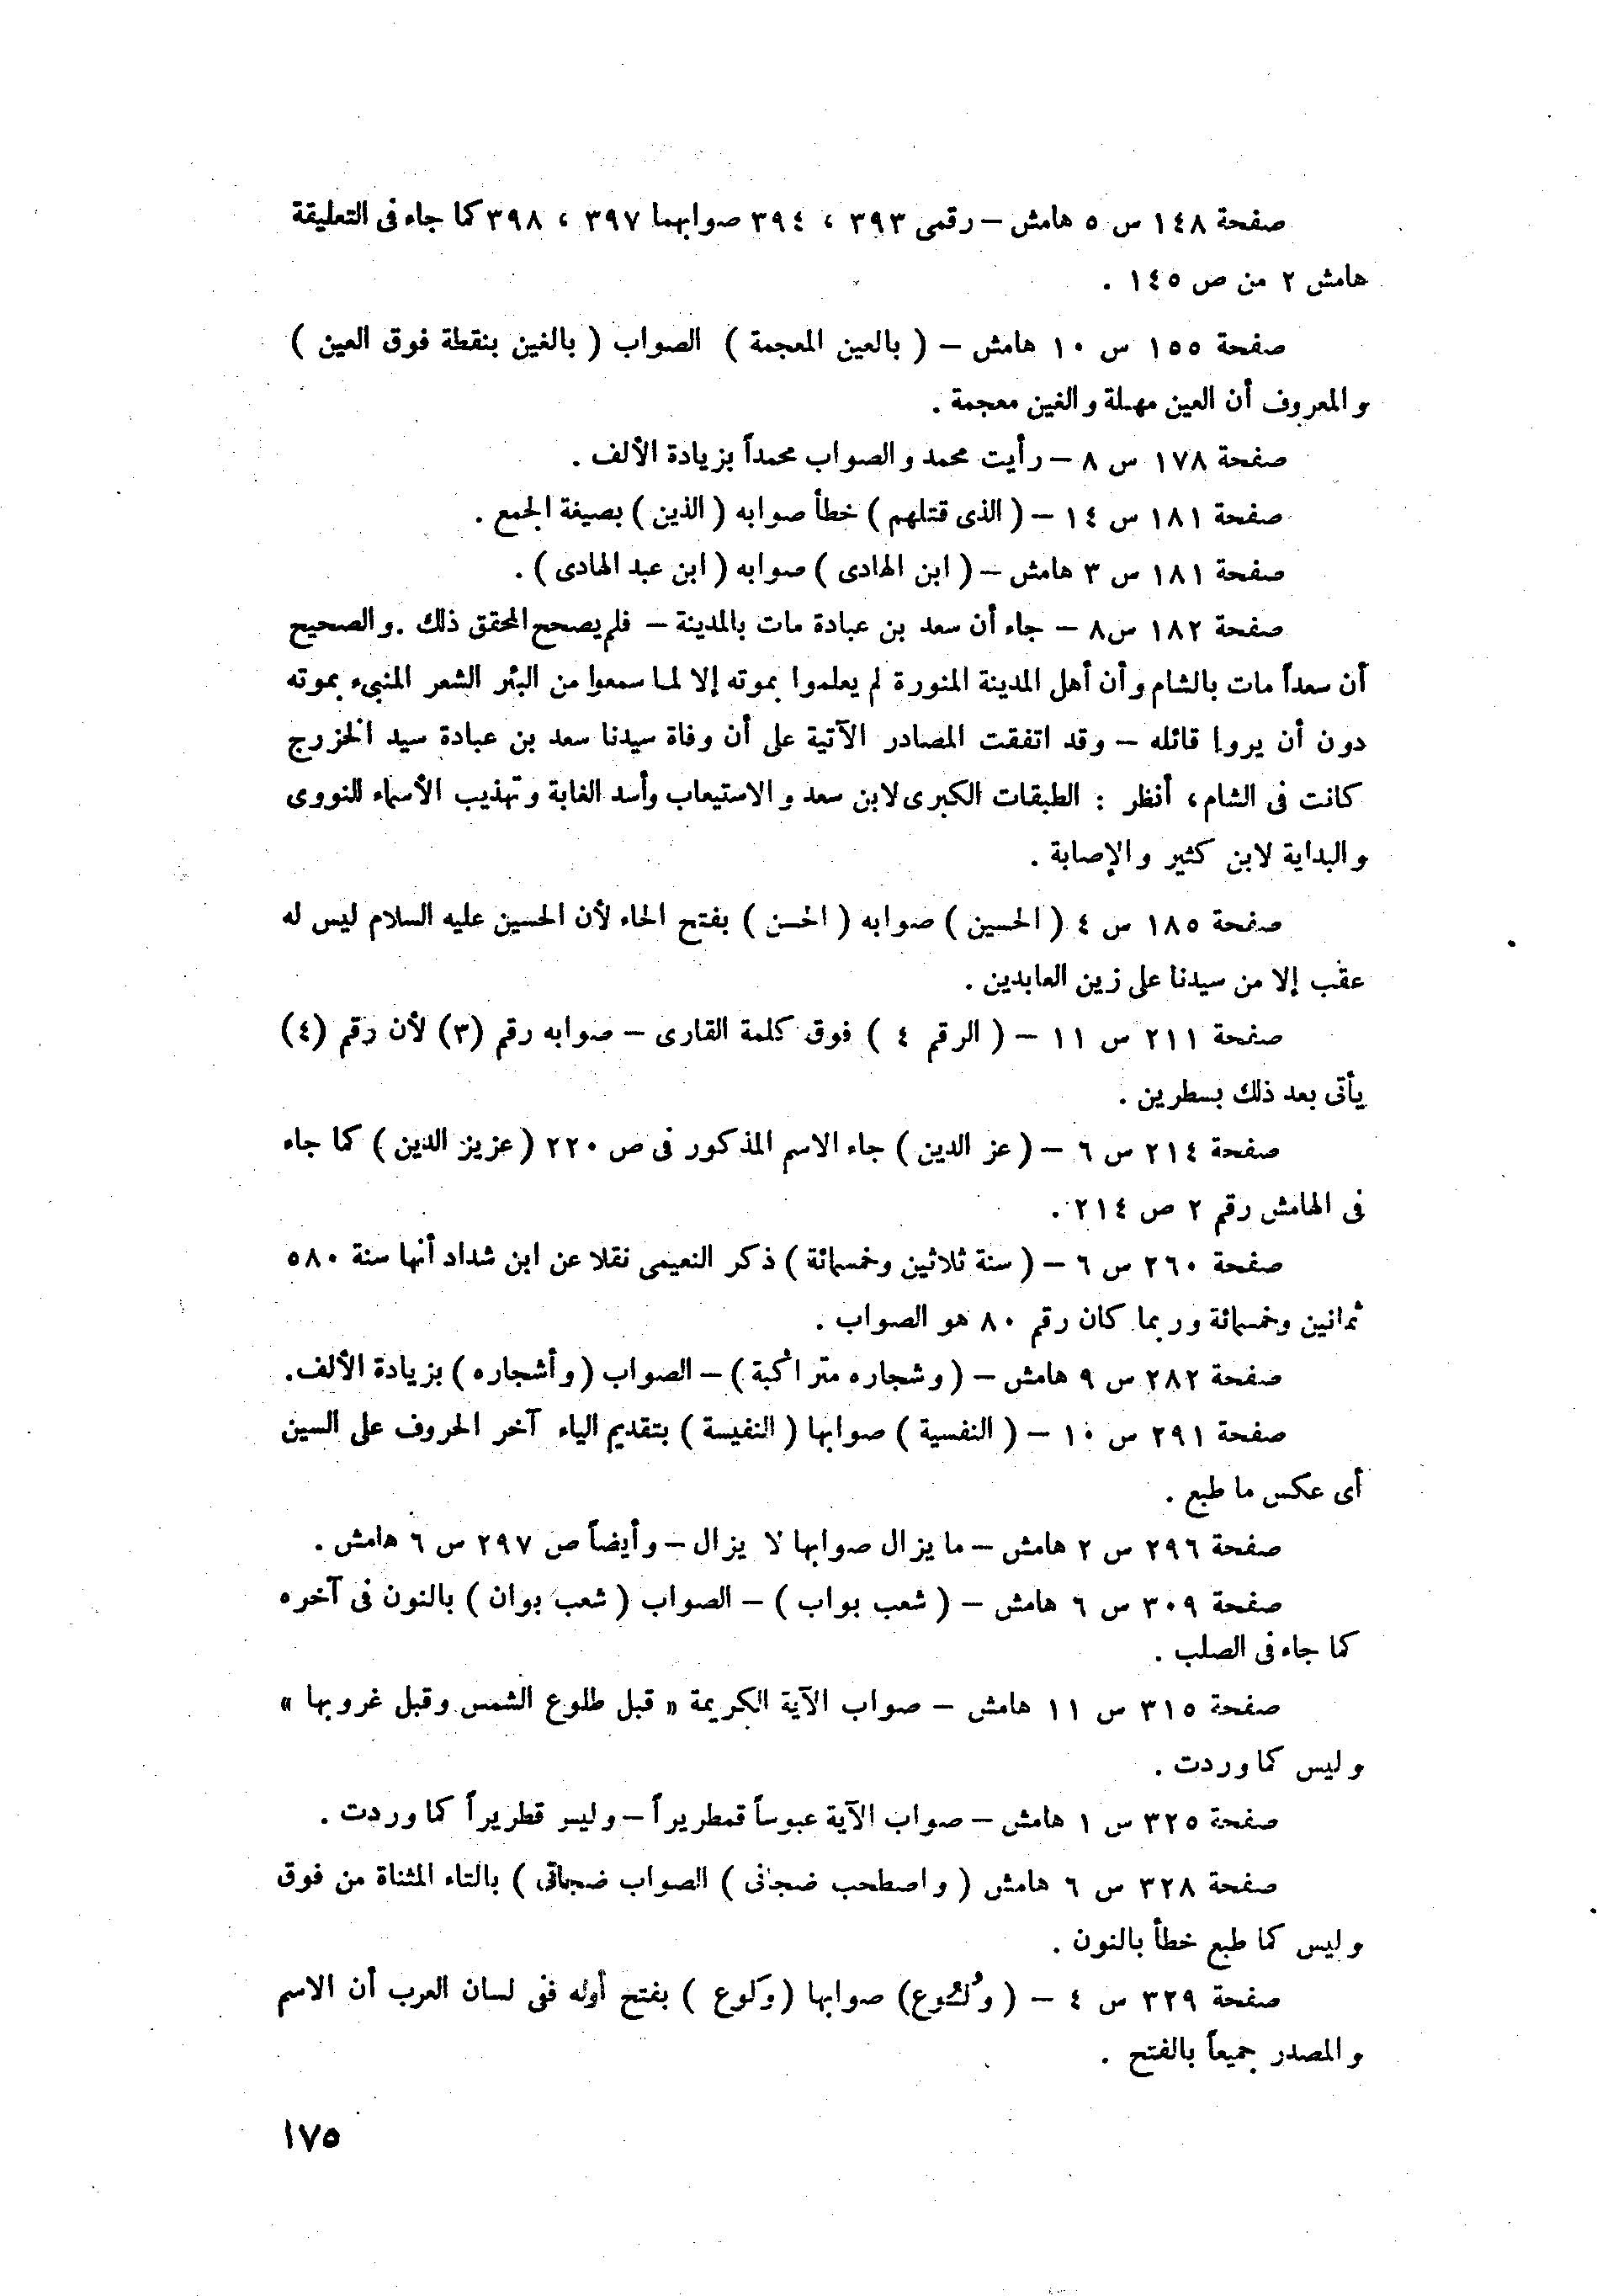 صفحة ١٤٨ س ٥ هامش – رقمى ٣٩٣ ، ٣٩٤ صوابهما ٣٩٧ ، ٣٩٨ كما جاء فى التعليقة
هامش ٢ من ص ١٤٥ .
صفحة ١٥٥ س ١٠ هامش – ( بالعين المعجمة ) الصواب ( بالغين بنقطة فوق العين )
والمعروف أن العين مهملة والغين معجمة .
صفحة ١٧٨ س ٨ – رأيت محمد والصواب محمداً بزيادة الألف .
صفحة ١٨١ س ١٤ – ( الذى قتلهم ) خطأ صوابه ( الذين ) بصيغة الجمع .
صفحة ١٨١ س ٣ هامش – ( ابن الهادى ) صوابه ( ابن عبد الهادى ) .
صفحة ١٨٢ س٨ – جاء أن سعد بن عبادة مات بالمدينة – فلم يصحح المحقق ذلك . والصحيح
أن سعداً مات بالشام وأن أهل المدينة المنورة لم يعلموا بموته إلا لما سمعوا من البئر الشعر المنبىء بموته
دون أن يروا قائله – وقد اتفقت المصادر الآتية على أن وفاة سيدنا سعد بن عبادة سيد الخزرج
كانت فى الشام ، أنظر : الطبقات الكبرى لابن سعد والاستيعاب وأسد الغابة وتهذيب الأسماء للنووى
والبداية لابن كثير والإصابة .
صفحة ١٨٥ س ٤ ( الحسين ) صوابه ( الحسن ) بفتح الحاء لأن الحسين عليه السلام ليس له
عقب إلا من سيدنا على زين العابدين .
صفحة ٢١١ س ١١ – ( الرقم ٤ ) فوق كلمة القارى – صوابه رقم (٣) لأن رقم (٤)
يأتى بعد ذلك بسطرين .
صفحة ٢١٤ س ٦ – ( عز الدين ) جاء الاسم المذكور فى ص ٢٢٠ ( عزيز الدين ) كما جاء
فى الهامش رقم ٢ ص ٢١٤ .
صفحة ٢٦٠ س ٦ – ( سنة ثلاثين وخمسمائة ) ذكر النعيمى نقلا عن ابن شداد أنها سنة ٥٨٠
ثمانين وخمسمائة وربما كان رقم ٨٠ هو الصواب .
صفحة ٢٨٢ س ٩ هامش – ( وشجاره متراكبة ) – الصواب ( وأشجاره ) بزيادة الألف .
صفحة ٢٩١ س ١٠ – ( النفسية ) صوابها ( النفيسة ) بتقديم الياء آخر الحروف على السين
أى عكس ما طبع .
صفحة ٢٩٦ س ٢ هامش – ما يزال صوابها لا يزال – وأيضاً ص ٢٩٧ س ٦ هامش .
صفحة ٣٠٩ س ٦ هامش – ( شعب بواب ) – الصواب ( شعب بوان ) بالنون فى آخره
كما جاء فى الصلب .
صفحة ٣١٥ س ١١ هامش – صواب الآية الكريمة « قبل طلوع الشمس وقبل غروبها »
وليس كما وردت .
صفحة ٣٢٥ س ١ هامش – صواب الآية عبوساً قمطريراً – وليس قطريراً كما وردت .
صفحة ٣٢٨ س ٦ هامش ( واصطحب ضجانى ) الصواب ضجاتى ) بالتاء المثناة من فوق
وليس كما طبع خطأ بالنون .
صفحة ٣٢٩ س ٤ – ( صوابها ( وَلوع ) بفتح أوله ففى لسان العرب أن الاسم
والمصدر جميعاً بالفتح .
١٧٥